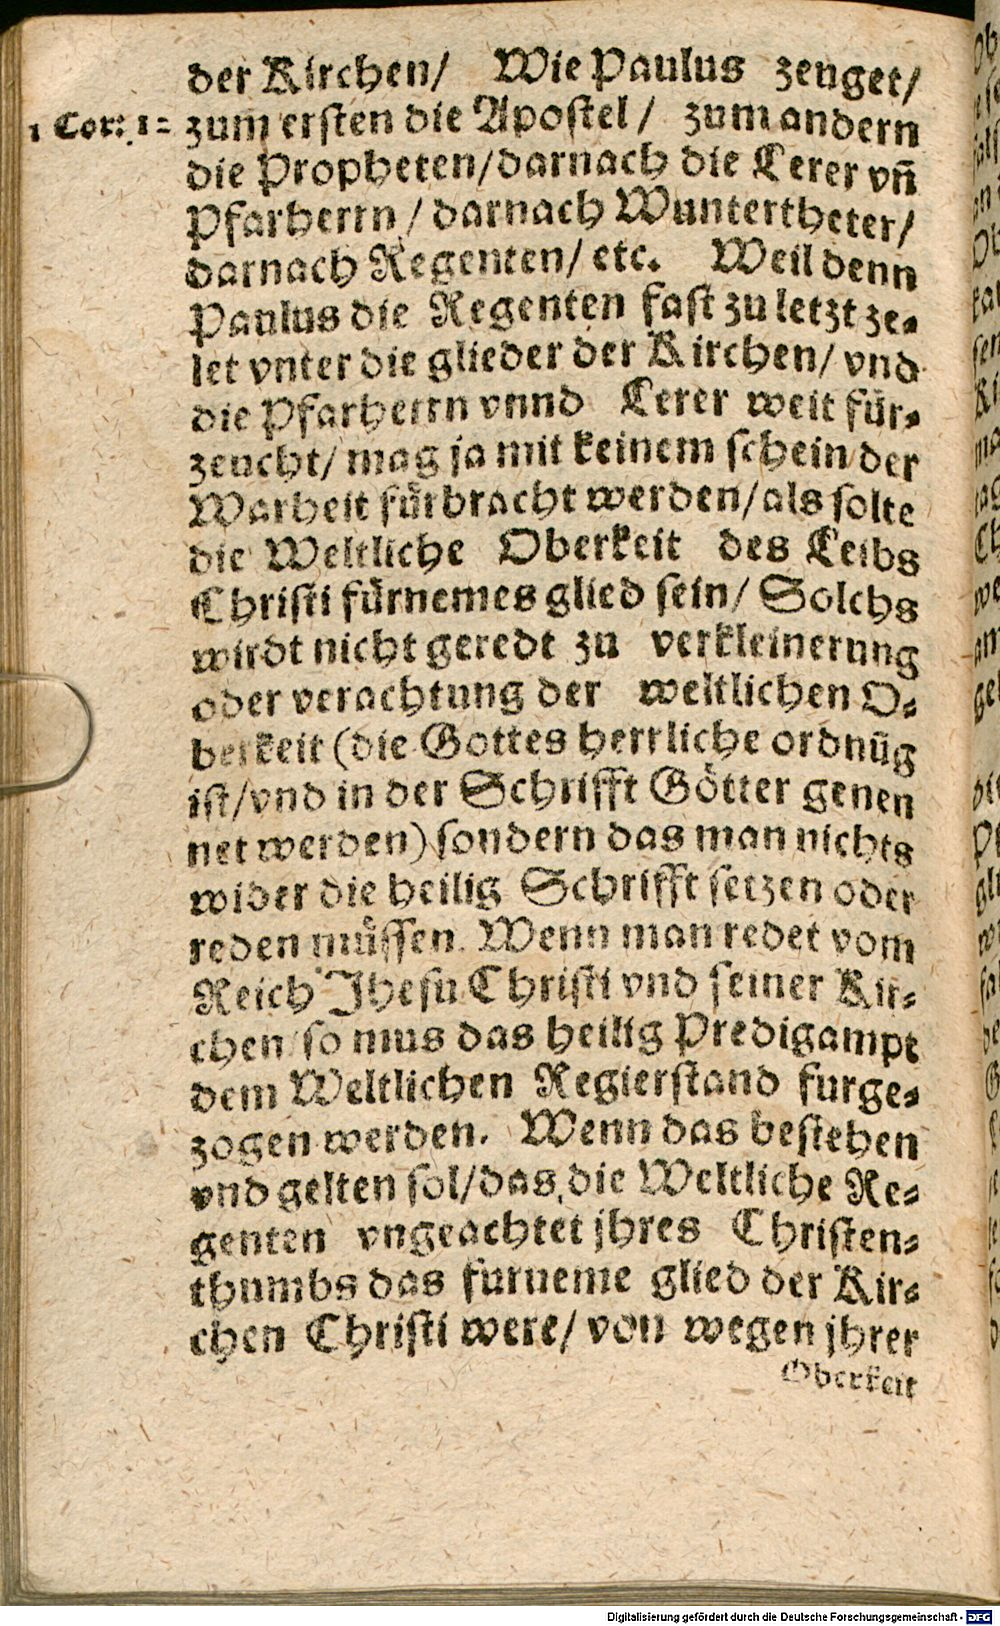 der Kirchen/ Wie Paulus zeuget/
1 Cor: 12 zum ersten die Apostel/ zum andern
die Propheten/darnach die Lerer vn̄
Pfarherrn/ darnach Wuntertheter/
darnach Regenten/ etc. Weil denn
Paulus die Regenten fast zu letzt ze-
let vnter die glieder der Kirchen/ vnd
die Pfarherrn vnnd Lerer weit für-
zeucht/ mag ja mit keinem schein der
Warheit fürbracht werden/als solte
die Weltliche Oberkeit des Leibs
Christi fürnemes glied sein/ Solchs
wirdt nicht geredt zu verkleinerung
oder verachtung der weltlichen O-
berkeit (die Gottes herrliche ordnūg
ist/vnd in der Schrifft Götter genen
net werden) sondern das man nichts
wider die heilig Schrifft setzen oder
reden müssen. Wenn man redet vom
Reich Jhesu Christi vnd seiner Kir-
chen/so mus das heilig Predigampt
dem Weltlichen Regierstand furge-
zogen werden. Wenn das bestehen
vnd gelten sol/das die Weltliche Re-
genten vngeachtet jhres Christen-
thumbs das furneme glied der Kir-
chen Christi were/ von wegen jhrer
Oberkeit
Digitalisierung gefördert durch die Deutsche Forschungsgemeinschaft - DFG